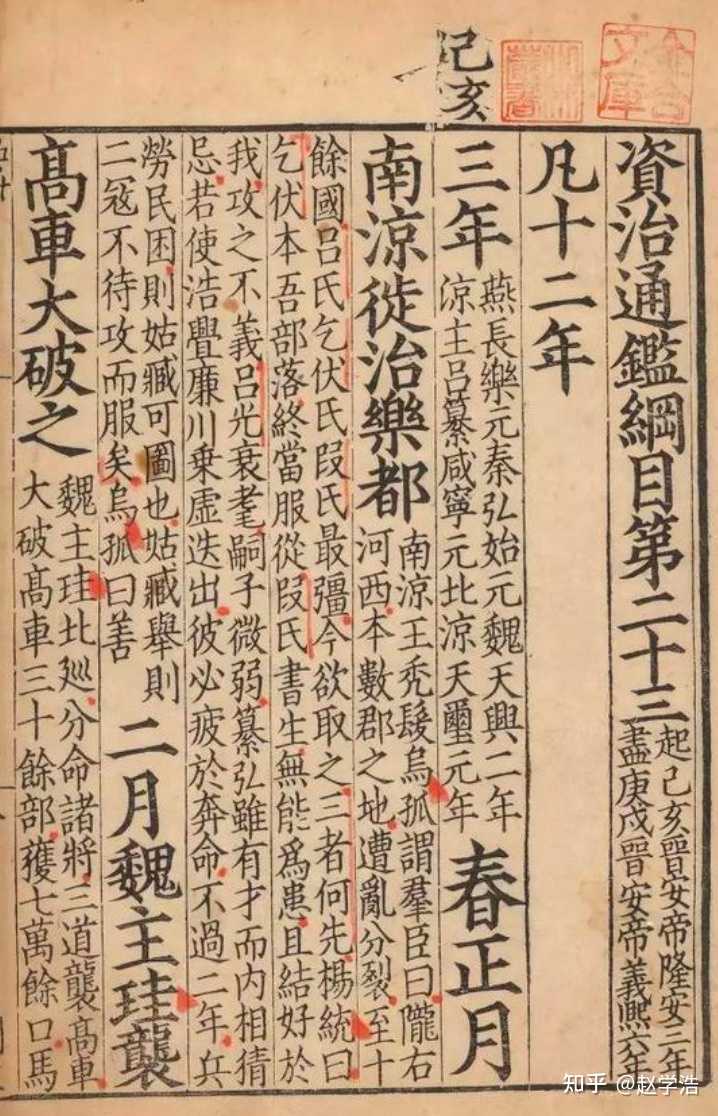 己亥
資治通鑑綱目第二十三
起己亥晉安帝隆安三年
盡庚戌晉安帝義熙六年
凡十二年
三年
燕長樂元秦弘始元魏天興二年
涼主呂纂咸寧元北涼天璽元年
春正月
南涼徙治樂都
南涼王秃髮烏孤謂羣臣曰隴右
河西本數郡之地遭亂分裂至十
餘國呂氏乞伏氏段氏最彊今欲取之三者何先楊統曰
乞伏本吾部落終當服從段氏書生無能爲患且結好於
我攻之不義呂光衰耄嗣子微弱纂弘雖有才而内相猜
忌若使浩亹廉川乗虛迭出彼必疲於奔命不過二年兵
勞民困則姑臧可圖也姑臧舉則
二冦不待攻而服矣烏孤曰善
二月魏主珪襲
髙車大破之
魏主珪北廵分命諸將三道襲髙車
大破髙車三十餘部獲七萬餘口馬
知乎 @赵学浩